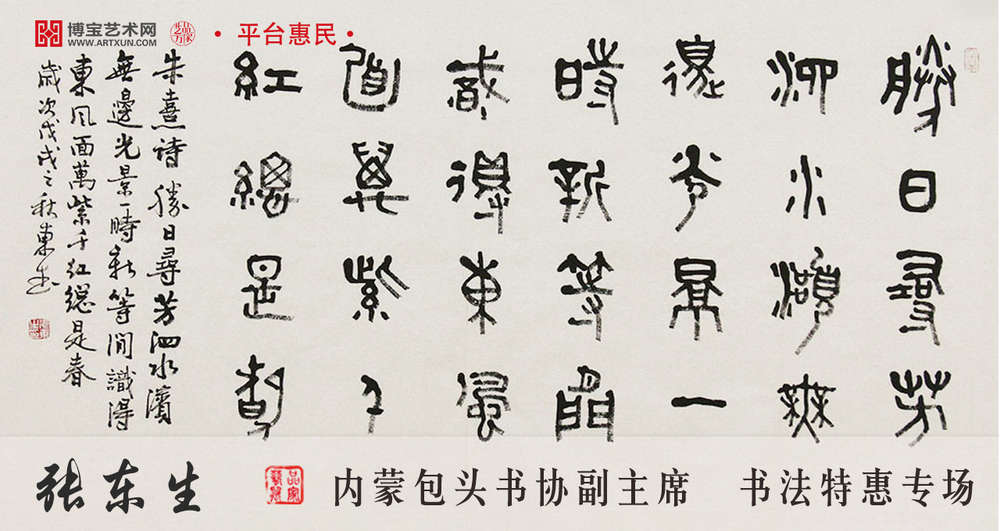 博宝艺术网
WWW.ARTXUN.COM
•平台惠民•
勝日尋芳
泗水濱無
邊光景一
時新等閒
識得東風
面萬紫千
紅總是春
朱熹诗 勝日尋芳泗水濱
無邊光景一時新等閒識得
東風面萬紫千红總是春
歲次戊戌之秋東生
张东生
内蒙包头书协副主席 书法特惠专场